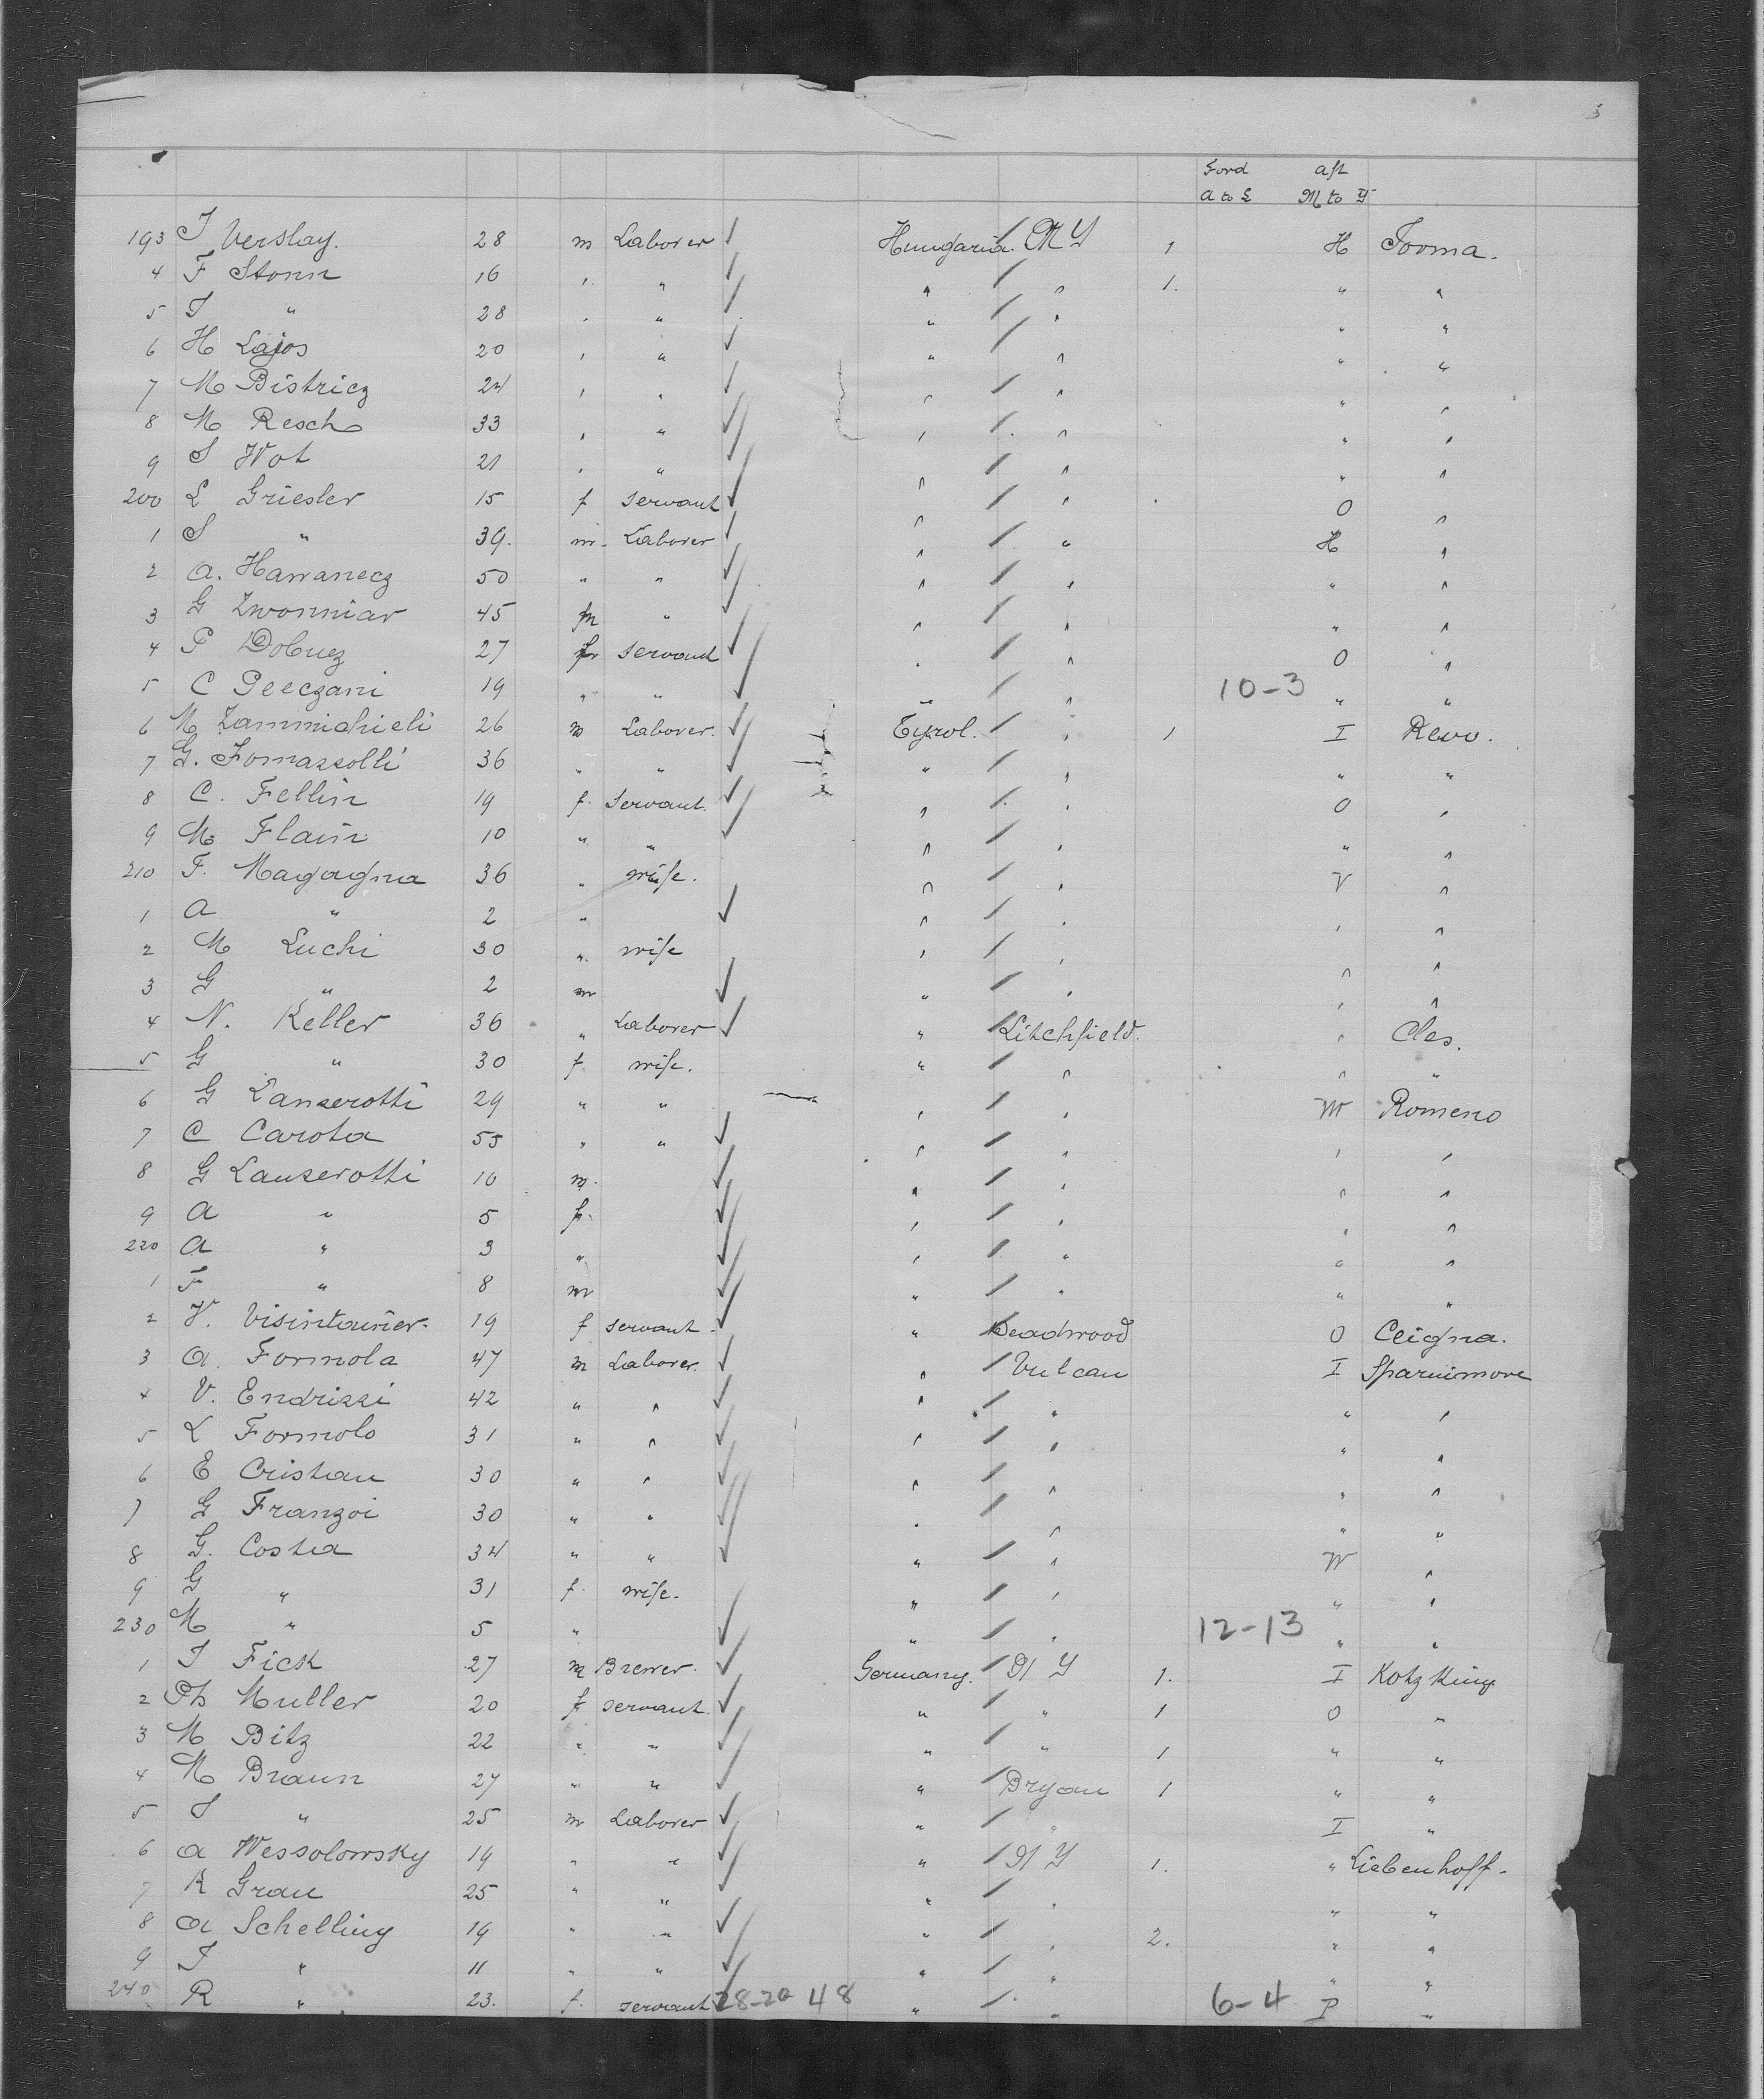 5
Ford aft
A to L M to Y
193 J Verslay. 28 m Laborer Hungaria. N Y 1 H Torma.
4 F Stonn 16 " " " " 1. " "
5 J " 28 " " " " " "
6 H Lajos 20 " " " " " "
7 M Bistricz 24 " " " " " "
8 M Resch 33 " " " " " "
9 S Wot 21 " " " " " "
200 L Griesler 15 f servant " " O "
1 S " 39. m Laborer " " H "
2 A. Hawanecz 50 " " " " " "
3 G Zwonniar 45 m " " " " "
4 P Dobuez 27 f servant " " O "
5 C Geeczani 19 " " " " 10-3 " "
6 M Zammichieli 26 m Laborer. Tyrol. " 1 I Revo.
7 G. Tomassolli 36 " " " " " "
8 C. Fellin 19 f. Servant. " " O "
9 M Flain 10 " " " " " "
210 F. Magagna 36 " wife. " " V "
1 A " 2 " " " " "
2 M Luchi 30 " wife " " " "
3 G " 2 m " " " "
4 N. Keller 36 " Laborer " Litchfield. " Cles.
5 G " 30 f. wife. " " " "
6 G Lanzerotti 29 " " " " W Romeno
7 C Carota 55 " " " " " "
8 G Lanzerotti 10 m. " " " "
9 A " 5 f. " " " "
220 A " 3 " " " " "
1 F " 8 m " " " "
2 V. Visintainer. 19 f servant " Deadwood O Cligna.
3 A. Formola 47 m Laborer. " Vulcan I Sparuimore
4 V. Endrizzi 42 " " " " " "
5 L Formolo 31 " " " " " "
6 E Cristian 30 " " " " " "
7 G Franzoi 30 " " " " " "
8 G. Costa 34 " " " " W "
9 G " 31 f. wife. " " " "
230 M " 5 " " " 12-13 " "
1 J Fick 27 m Brewer. Germany. N Y 1. I Kotzking
2 Ph Muller 20 f servant. " " 1 O "
3 M Bitz 22 " " " " 1 " "
4 M Braun 27 " " " Bryan 1 " "
5 J " 25 m Laborer " " I "
6 A Wessolowsky 19 " " " N Y 1. " Liebenhoff.
7 R Grau 25 " " " " " "
8 A Schelling 19 " " " " 2. " "
9 J " 11 " " " " " "
240 R " 23. f. servant 28-20 48 " " 6-4 P "